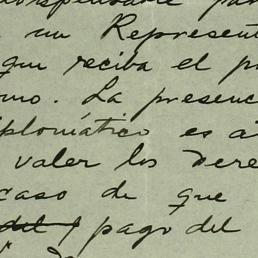 un Represent
que reciba el p
mo. La presenc
plomático es a
valer los dere
caso de que
del pago del